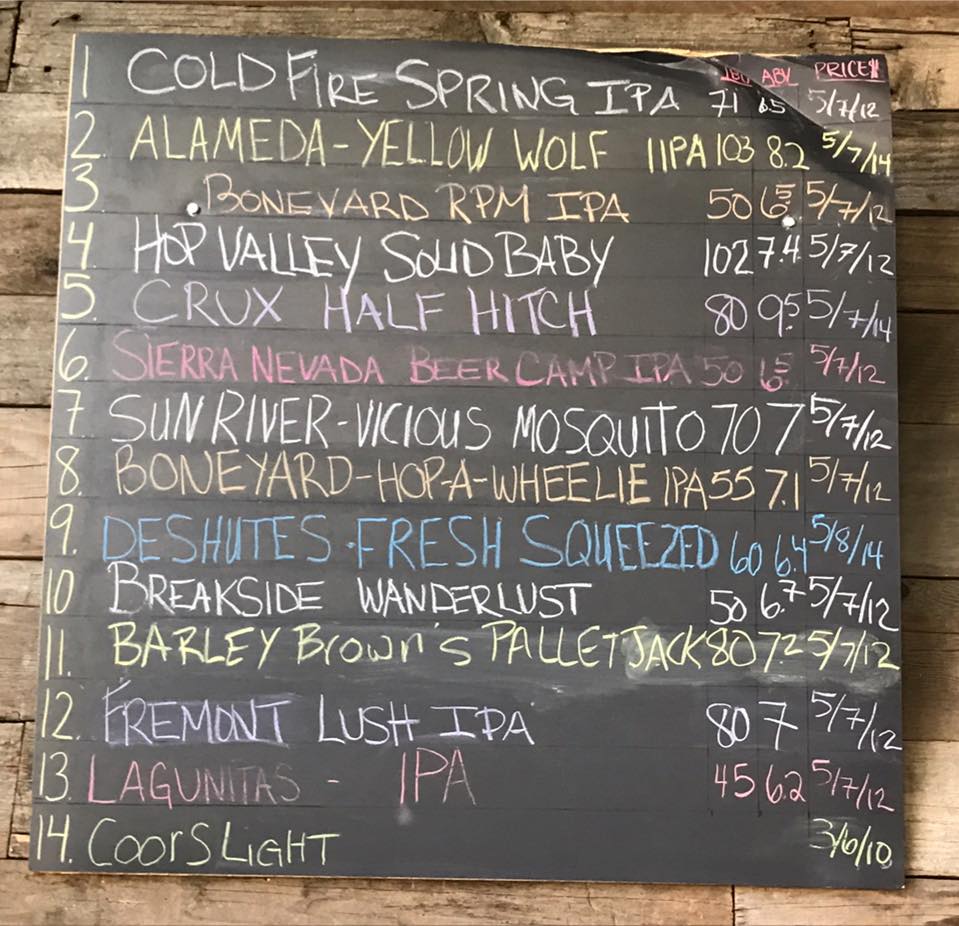 IBU ABV PRICE$
1 COLD FIRE SPRING IPA 71 6.5 5/7/12
2. ALAMEDA-YELLOW WOLF IIPA 103 8.2 5/7/14
3 BONEYARD RPM IPA 50 6.5 5/7/12
4 HOP VALLEY SOLID BABY 102 7.4 5/7/12
5. CRUX HALF HITCH 80 9.5 5/7/14
6. SIERRA NEVADA BEER CAMP IPA 50 6.5 5/7/12
7 SUNRIVER-VICIOUS MOSQUITO 70 7 5/7/12
8. BONEYARD-HOP-A-WHEELIE IPA 55 7.1 5/7/12
9. DESHUTES-FRESH SQUEEZED 60 6.4 5/8/14
10 BREAKSIDE WANDERLUST 50 6.7 5/7/12
11. BARLEY Brown's PALLET JACK 80 7.2 5/7/12
12. FREMONT LUSH IPA 80 7 5/7/12
13. LAGUNITAS - IPA 45 6.2 5/7/12
14. COORS LIGHT 3/6/10